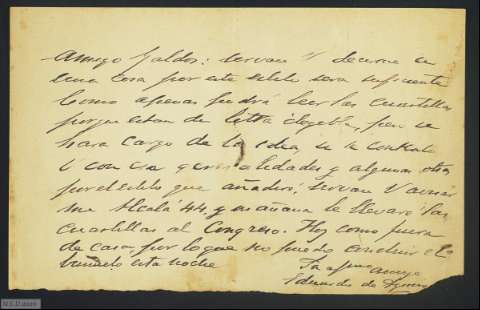 Amigo Galdos: servase V decirme si
una cosa por este estilo sera suficiente
Como apenas podrá leer las cuartillas
porque estan de letra ilegible, pero se
hara cargo de la idea, si le contesta
con esa generalidades y algunas otras
por el estilo que añadiré, servase V avisar
me Alcalá 44, y mañana le llevaré las
cuartillas al Congreso. Hoy como fuera
de casa por lo que no puedo concluir el
esta noche
Su afmo amigo
Eduardo de